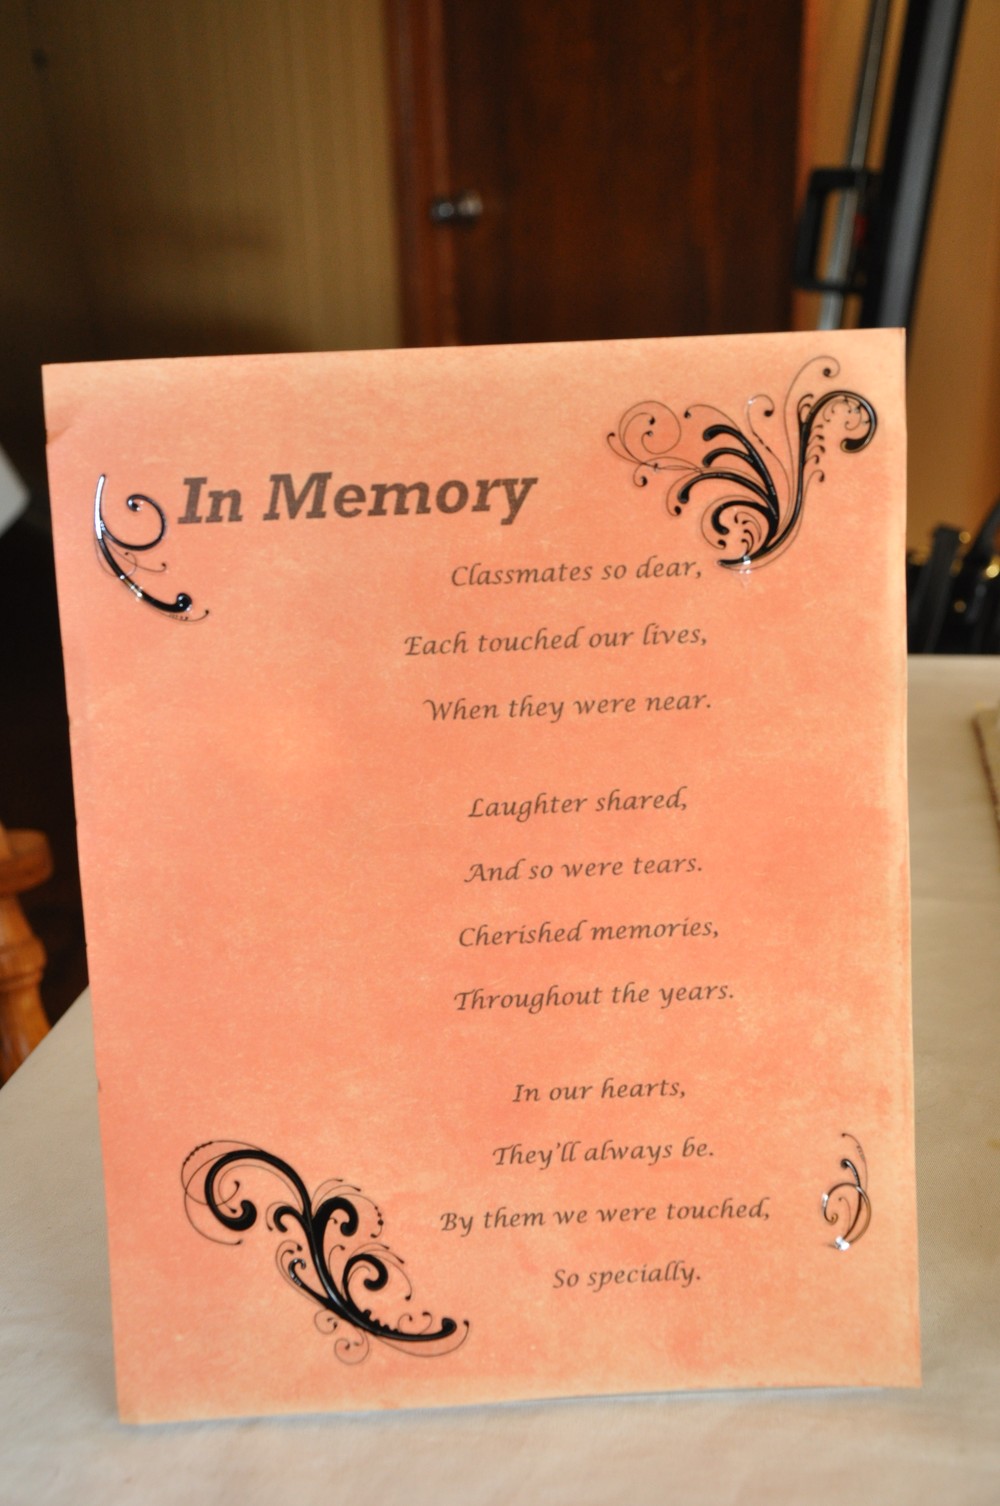 In Memory
Classmates so dear,
Each touched our lives,
When they were near.
Laughter shared,
And so were tears.
Cherished memories,
Throughout the years.
In our hearts,
They'll always be.
By them we were touched,
So specially.